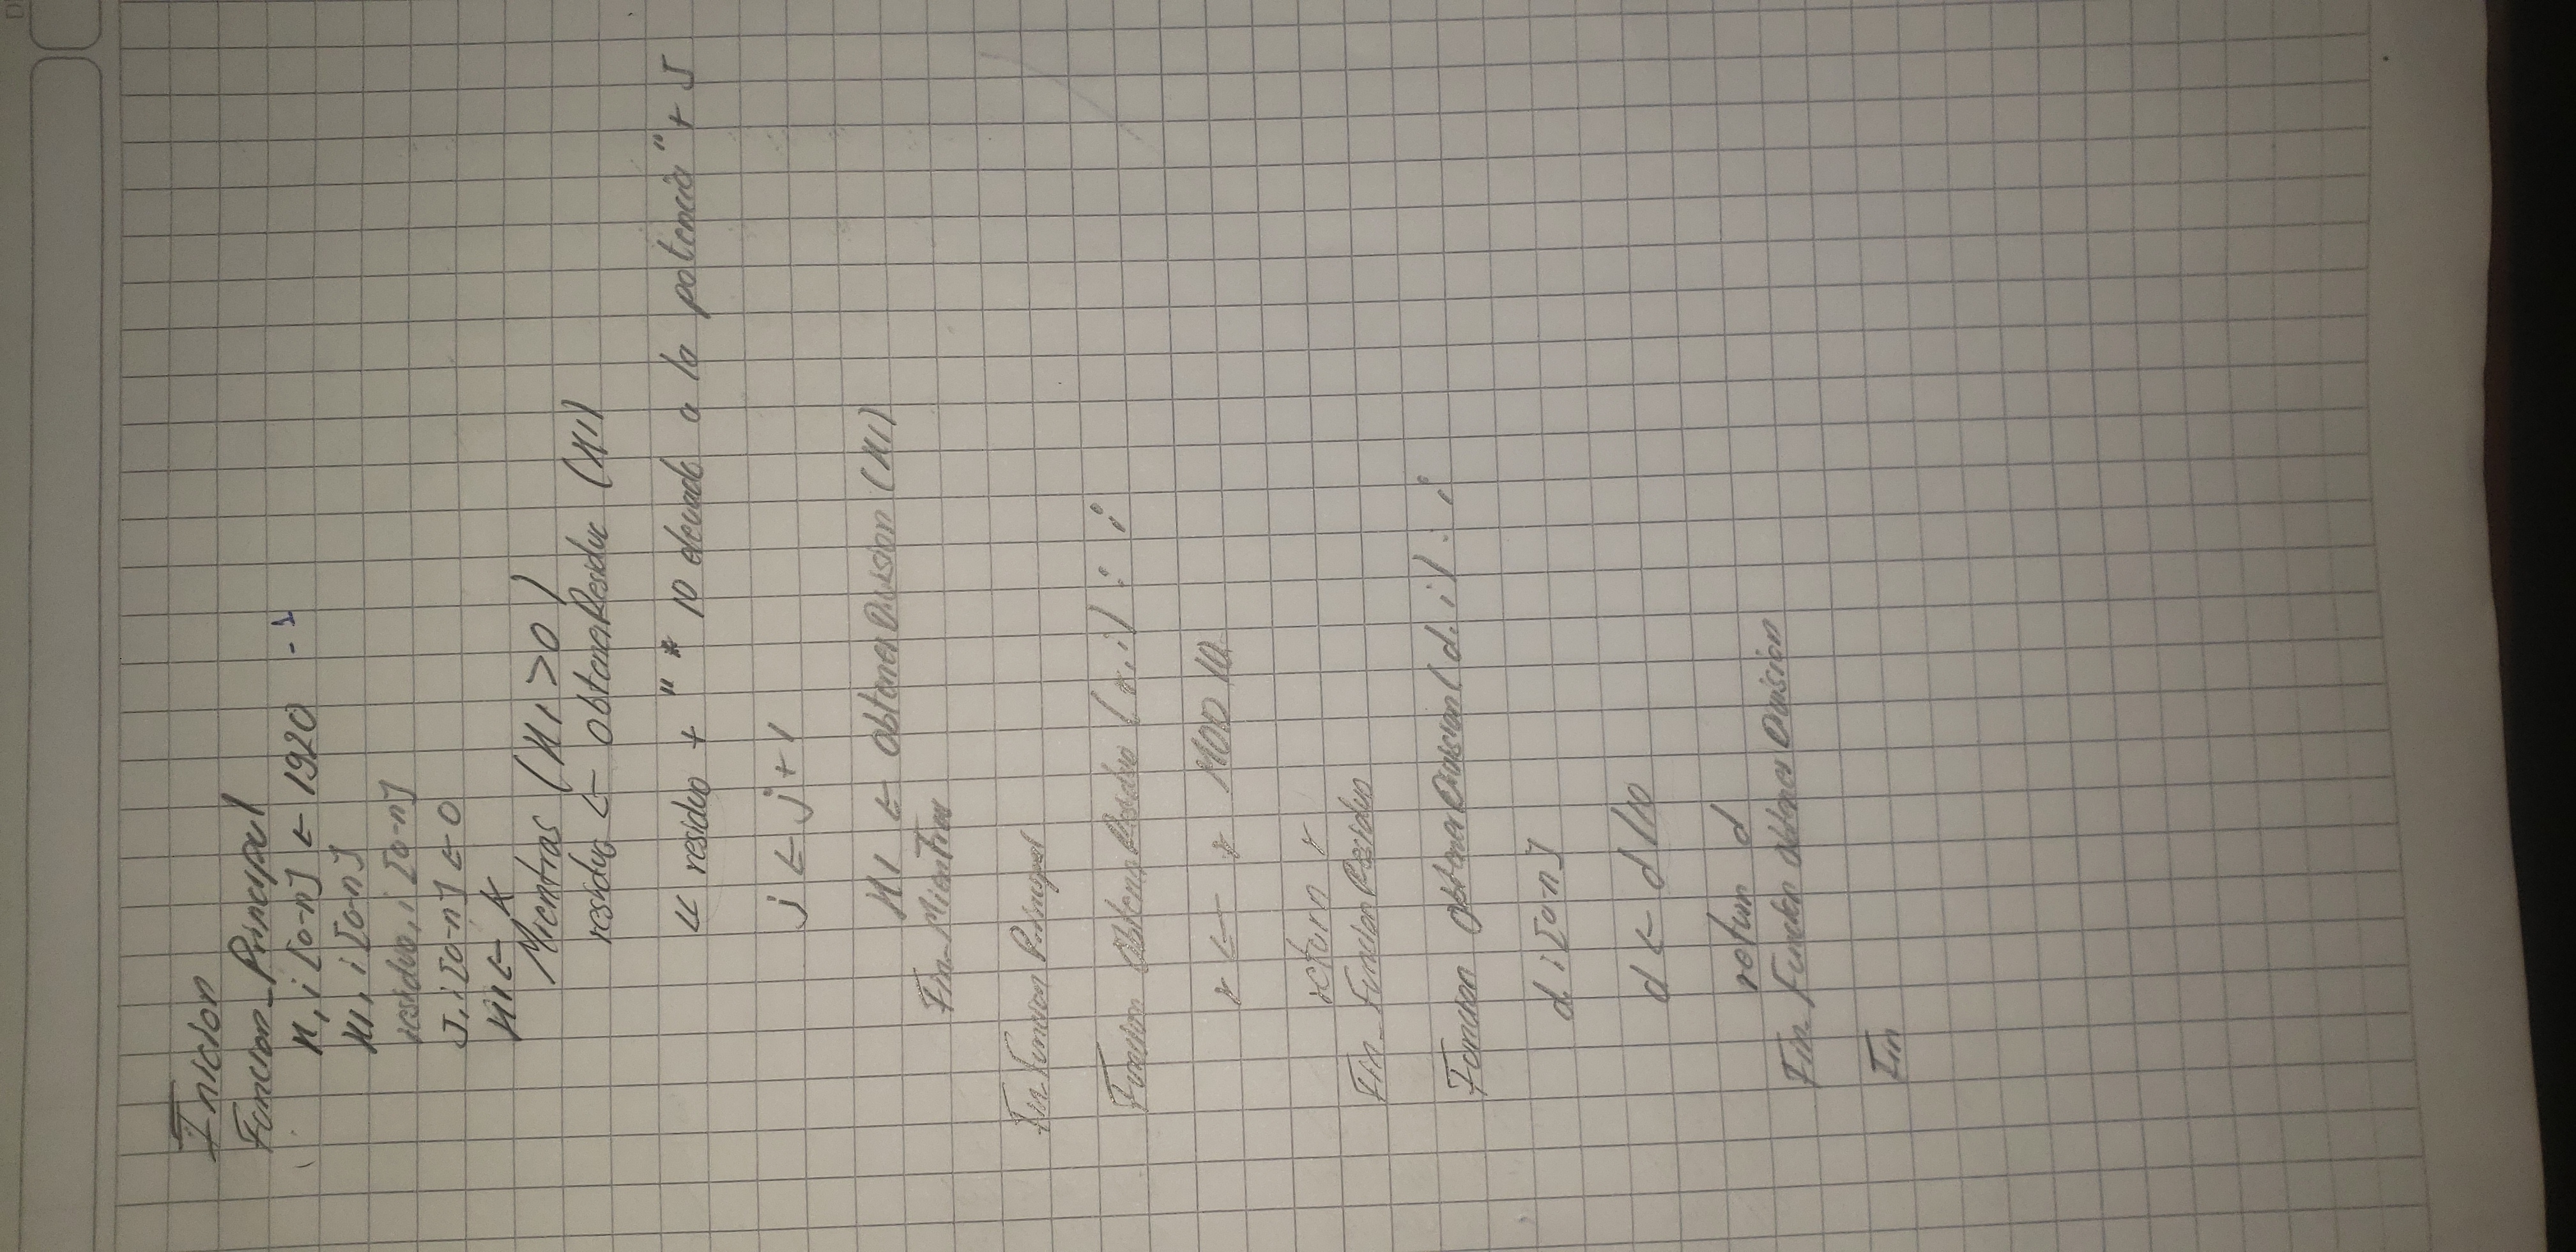 Inicion
Funcion_Principal
x, i [0-n] ← 1920 -1
x1, i [0-n]
residuo, i [0-n]
J, i [0-n] ← 0
x1 ← x
Mientras (x1 > 0)
residuo ← obtenerResiduo (x1)
« residuo + " * 10 elevado a la potencia" + J
j ← j + 1
x1 ← obtenerDivision (x1)
Fin_Mientras
Fin_Funcion Principal
Funcion ObtenerResiduo (r, i) : i
r ← r MOD 10
return r
Fin_Funcion Residuo
Funcion obtenerDivision (d, i) : i
d, i [0-n]
d ← d/10
return d
Fin_Funcion obtener Division
Fin